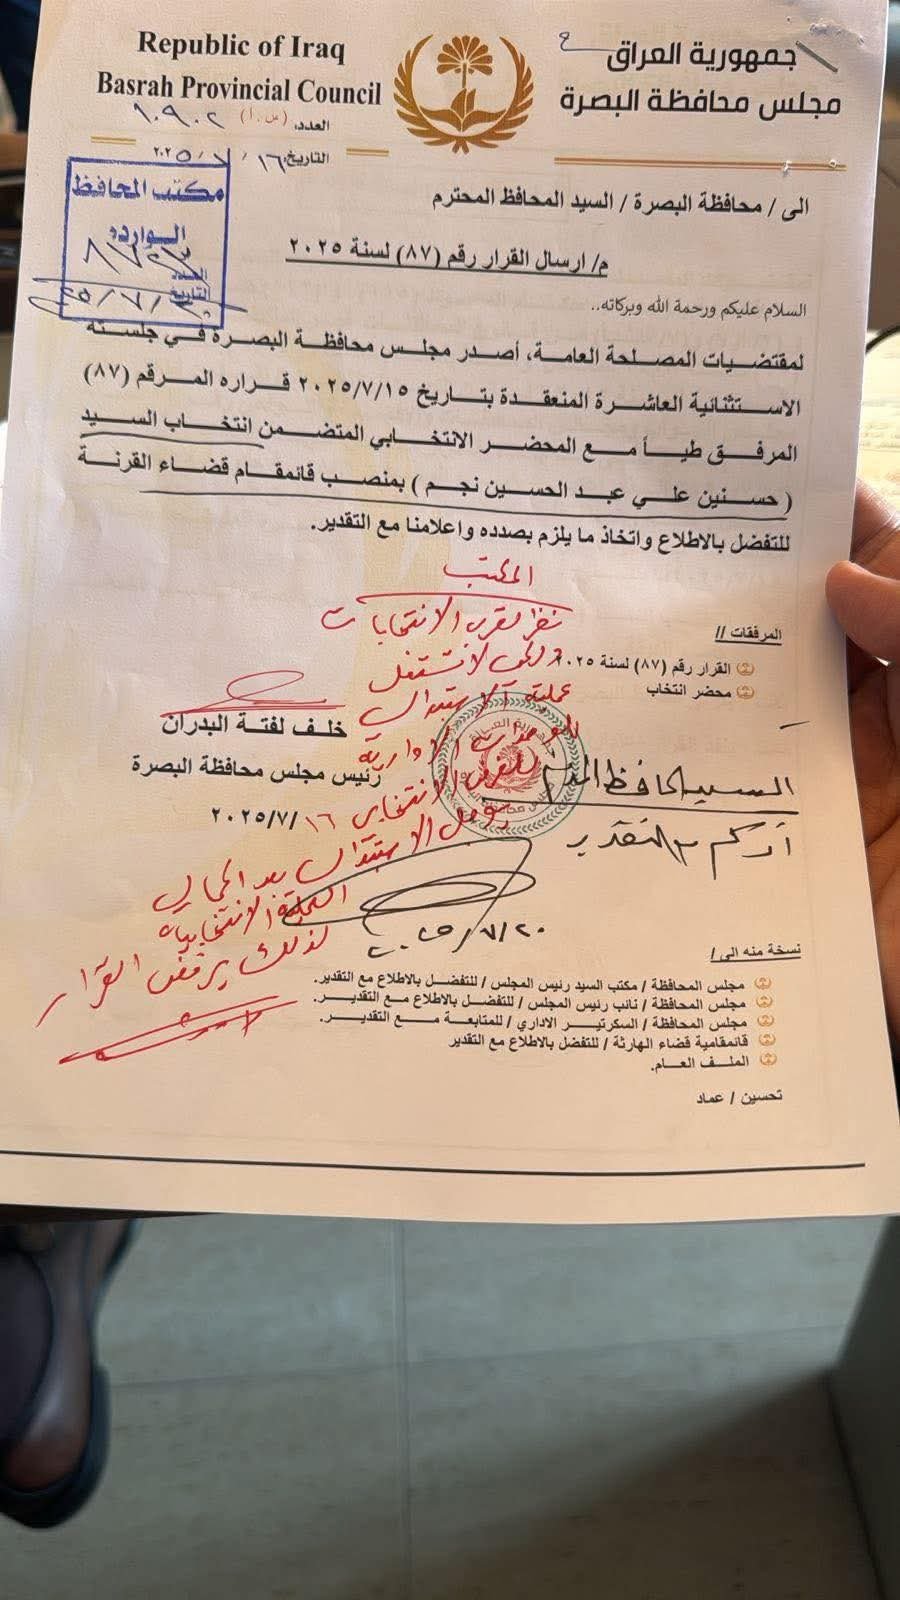 Republic of Iraq
Basrah Provincial Council
جمهورية العراق
مجلس محافظة البصرة
العدد: (س.١) ١٠٩٠٢
التاريخ: ١٦ / ٧ / ٢٠٢٥
مكتب المحافظ
الواردة
العدد
التاريخ
الى / محافظة البصرة / السيد المحافظ المحترم
م/ ارسال القرار رقم (٨٧) لسنة ٢٠٢٥
السلام عليكم ورحمة الله وبركاته..
لمقتضيات المصلحة العامة، أصدر مجلس محافظة البصرة في جلسته
الاستثنائية العاشرة المنعقدة بتاريخ ٢٠٢٥/٧/١٥ قراره المرقم (٨٧)
المرفق طياً مع المحضر الانتخابي المتضمن انتخاب السيد
( حسنين علي عبد الحسين نجم ) بمنصب قائمقام قضاء القرنة
للتفضل بالاطلاع واتخاذ ما يلزم بصدده واعلامنا مع التقدير.
المكتب
نظراً لقرب الانتخابات
ولكي لا تستغل
عملية الاستبدال
الوحدات الادارية
للغرض الانتخابي
يؤجل الاستبدال بعد اكمال
العملية الانتخابية
لذلك يرفض القرار
المرفقات //
القرار رقم (٨٧) لسنة ٢٠٢٥
محضر انتخاب
خلف لفتة البدران
رئيس مجلس محافظة البصرة
١٦ /٢٠٢٥/٧
السيد المحافظ المحترم
أمركم مع التقدير
٧/٢٠
نسخة منه الى /
مجلس المحافظة / مكتب السيد رئيس المجلس / للتفضل بالاطلاع مع التقدير.
مجلس المحافظة / نائب رئيس المجلس / للتفضل بالاطلاع مع التقدير.
مجلس المحافظة / السكرتير الاداري / للمتابعة مع التقدير.
قائمقامية قضاء الهارثة / للتفضل بالاطلاع مع التقدير
الملف العام.
تحسين / عماد